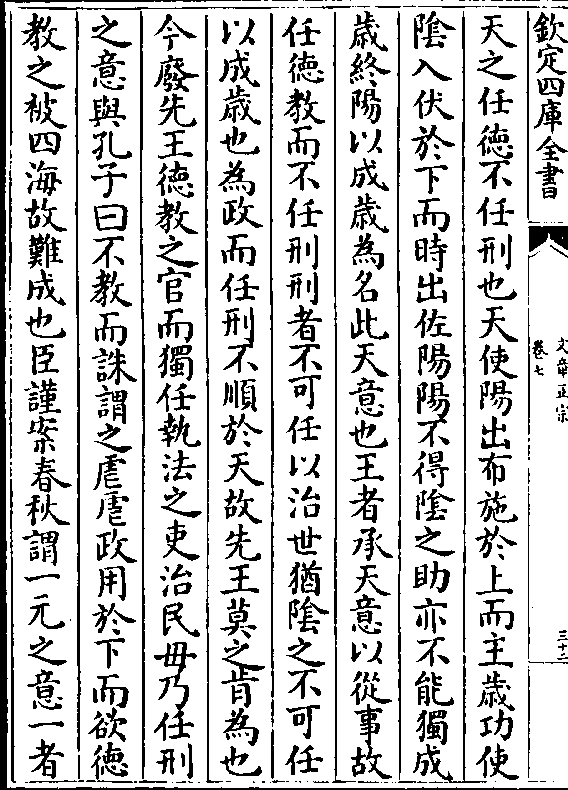 欽定四庫全書
文章正宗
卷七
三十二
天之任德不任刑也天使陽出布施於上而主歲功使
陰入伏於下而時出佐陽陽不得陰之助亦不能獨成
歲終陽以成歲為名此天意也王者承天意以從事故
任德教而不任刑刑者不可任以治世猶陰之不可任
以成歲也為政而任刑不順於天故先王莫之肯為也
今廢先王德教之官而獨任執法之吏治民毋乃任刑
之意與孔子曰不教而誅謂之虐虐政用於下而欲德
教之被四海故難成也臣謹案春秋謂一元之意一者